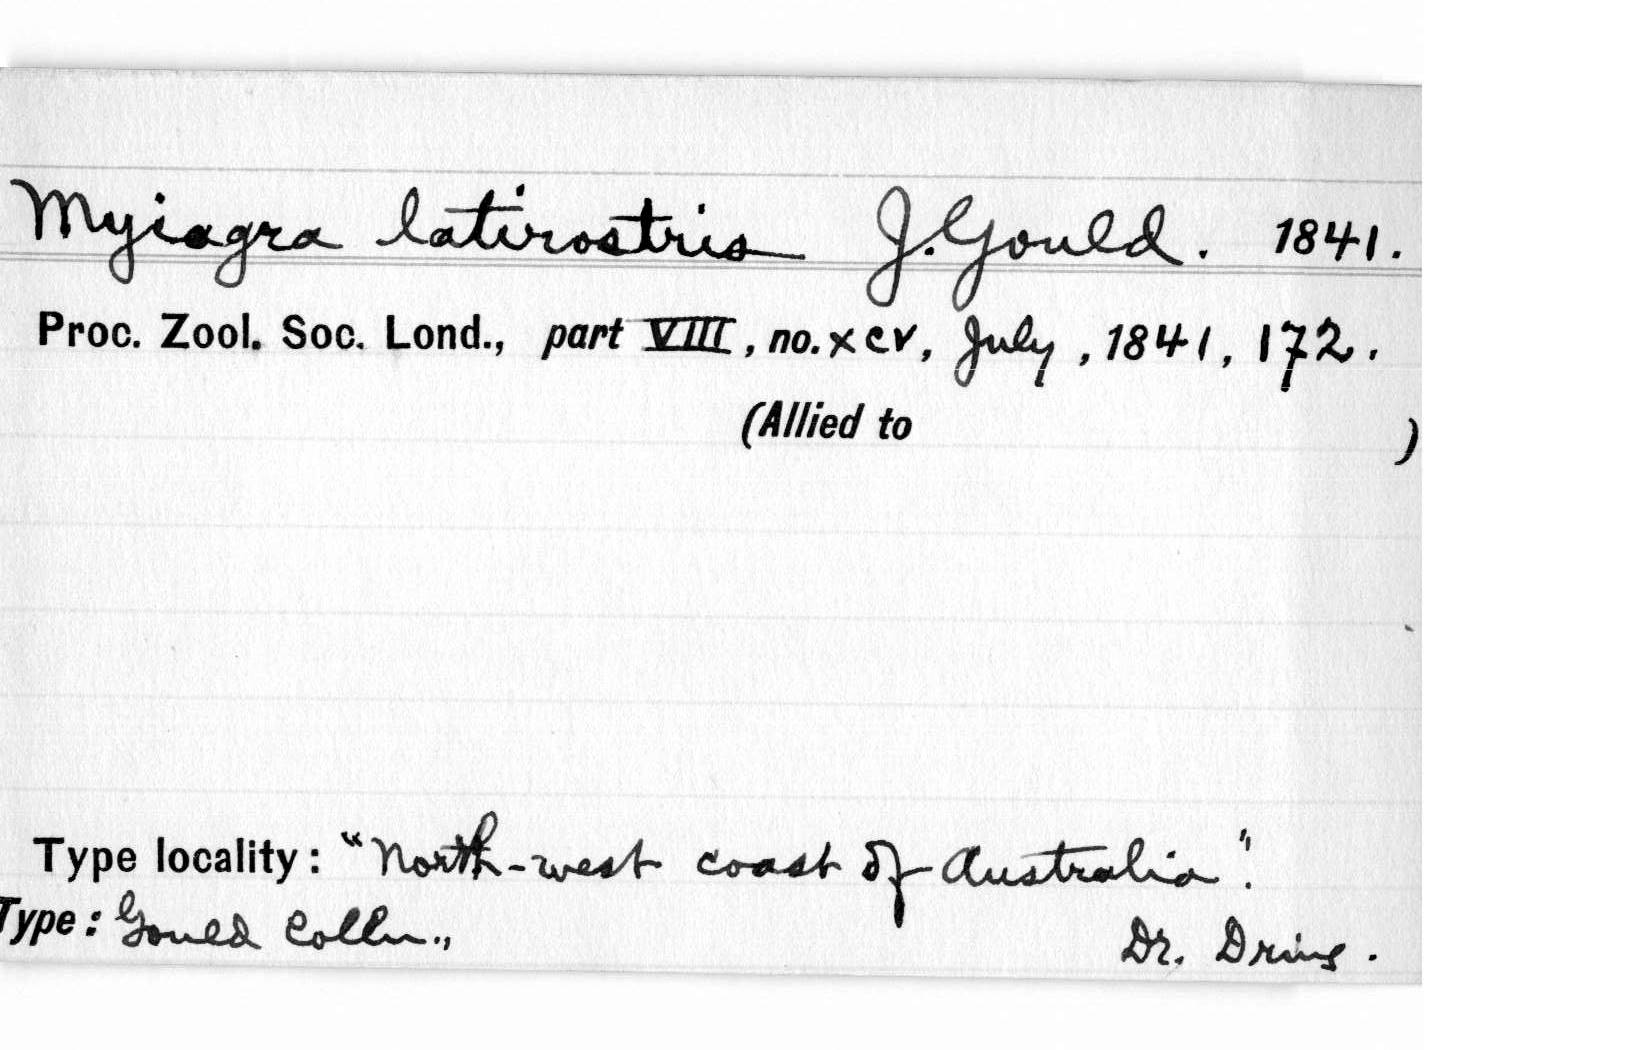 Myiagra latirostris J. Gould. 1841.
Proc. Zool. Soc. Lond., part VIII, no. xcv, July, 1841, 172.
(Allied to )
Type locality: "North-west coast of Australia".
Type: Gould Colln., Dr. Dring.